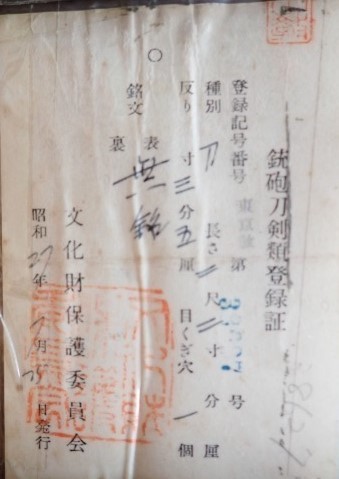 銃砲刀剣類登録証
登録記号番号 東京 第 号
種別 刀 長さ 二尺二寸 分 厘
反り 寸三分五厘 目くぎ穴 一個
銘文 表 無銘
裏
文化財保護委員会
昭和27年 月 日発行